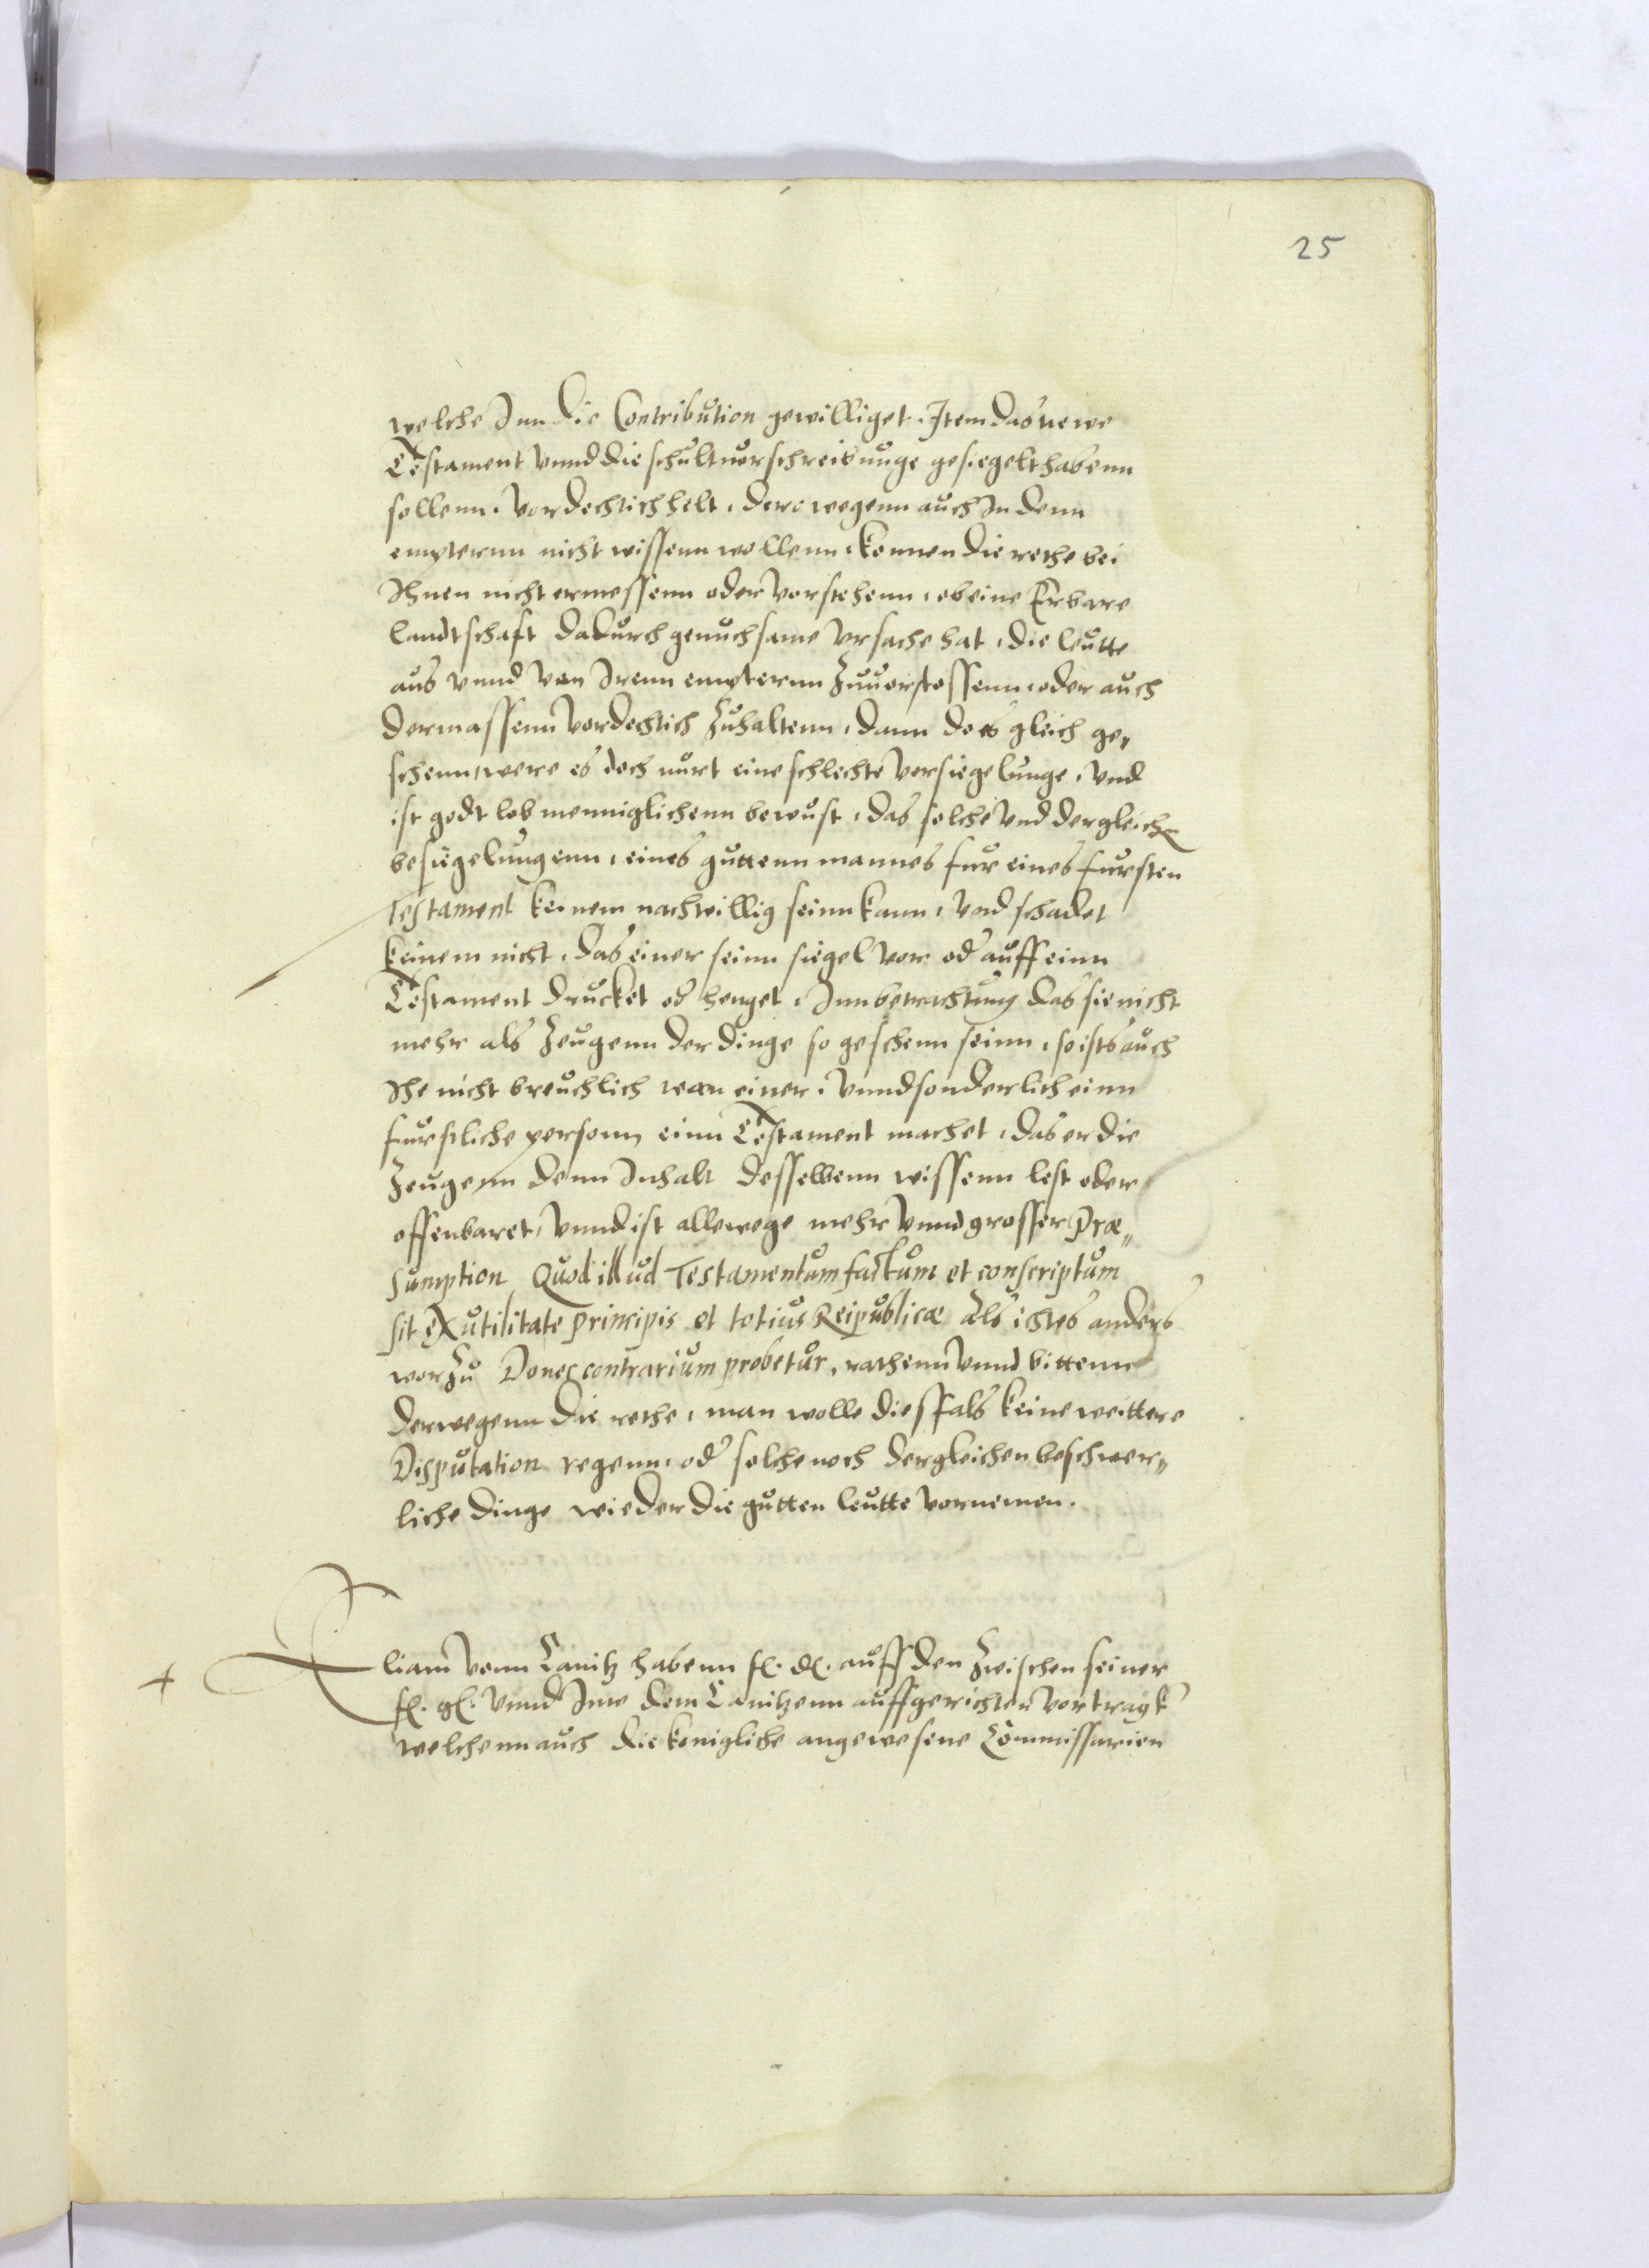 25
welche Inn die Contribution gewilliget. Item das newe
Testament vnnd die schultuorschreibunge gesiegelt habenn
sollenn. vordechtich helt, derowegenn auch In denn
empternn nicht wissenn wollenn, konnen die rethe bei
Ihnen nicht ermessenn oder vorstehenn, ob eine Erbare
landtschaft dadurch genuchsame vrsache hat, die leutte
aus vnnd von Irenn empternn zuuorstossenn, oder auch
dermassenn vordechtich zuhaltenn, dann do es gleich ge„
schenn, were es doch nurt eine schlechte vorsiegelunge, vnd
ist godt lob menniglichenn bewust, das solche vnd dergleichen
besiegelungenn, eines guttenn mannes fur eines fursten
Testament keinem nachteillig seinn kann, vnd schadet
keinem nicht, das einer seinn siegel vor od auff einn
Testament drucket od henget, Inn betrachtung das sie nicht
mehr als zeugenn der dinge so geschenn seinn, so ists auch
Ihe nicht breuchlich wan einer, vnnd sonderlich einn
furstliche personn einn Testament machet, das er die
zeugenn denn Inhalt desselbenn wissenn lest oder
offenbaret, vnnd ist allewege mehr vnnd grosser Præ„
sumption Quod illud Testamentum factum et conscriptum
sit ex utilitate principis et totius Reipublicæ als ichtes anders
worzu Donec contrarium probetur, rathenn vnnd bittenn
derwegenn die rethe, man wolle diesfals keine weittere
Disputation regenn, od solche noch dergleichen beschwer„
liche dinge wieder die gutten leutte vornemen.
Eliam vonn Canitz habenn f. d. auff den zwischen seiner
f. g. vnnd Ime dem Canitzenn auffgerichten vortragk
welchenn auch die konigliche angewesene Commissarien